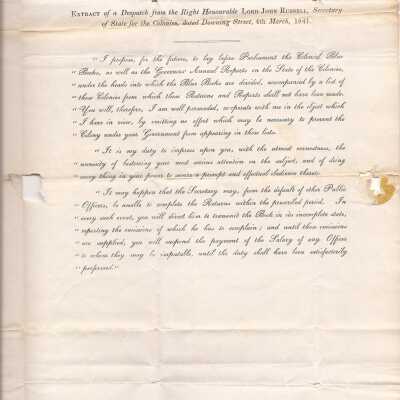 EXTRACT of a Despatch from the Right Honourable LORD JOHN RUSSELL, Secretary
of State for the Colonies, dated Downing Street, 4th March, 1841.
" I propose, for the future, to lay before Parliament the Colonial Blue
" Books, as well as the Governors Annual Reports on the State of the Colonies,
" under the heads into which the Blue Books are divided, accompanied by a list of
" those Colonies from which these Returns and Reports shall not have been made.
" You will, therefore, I am well persuaded, co-operate with me in the object which
" I have in view, by omitting no effort which may be necessary to prevent the
" Colony under your Government from appearing in these lists.
" It is my duty to impress upon you, with the utmost earnestness, the
" necessity of bestowing your most anxious attention on the subject, and of doing
" every thing in your power to ensure a prompt and effectual obedience thereto.
" It may happen that the Secretary may, from the default of other Public
" Officers, be unable to complete the Returns within the prescribed period. In
" every such event, you will direct him to transmit the Book in its incomplete state,
" reporting the omissions of which he has to complain; and until those omissions
" are supplied, you will suspend the payment of the Salary of any Officer
" to whom they may be imputable, until the duty shall have been satisfactorily
" performed."